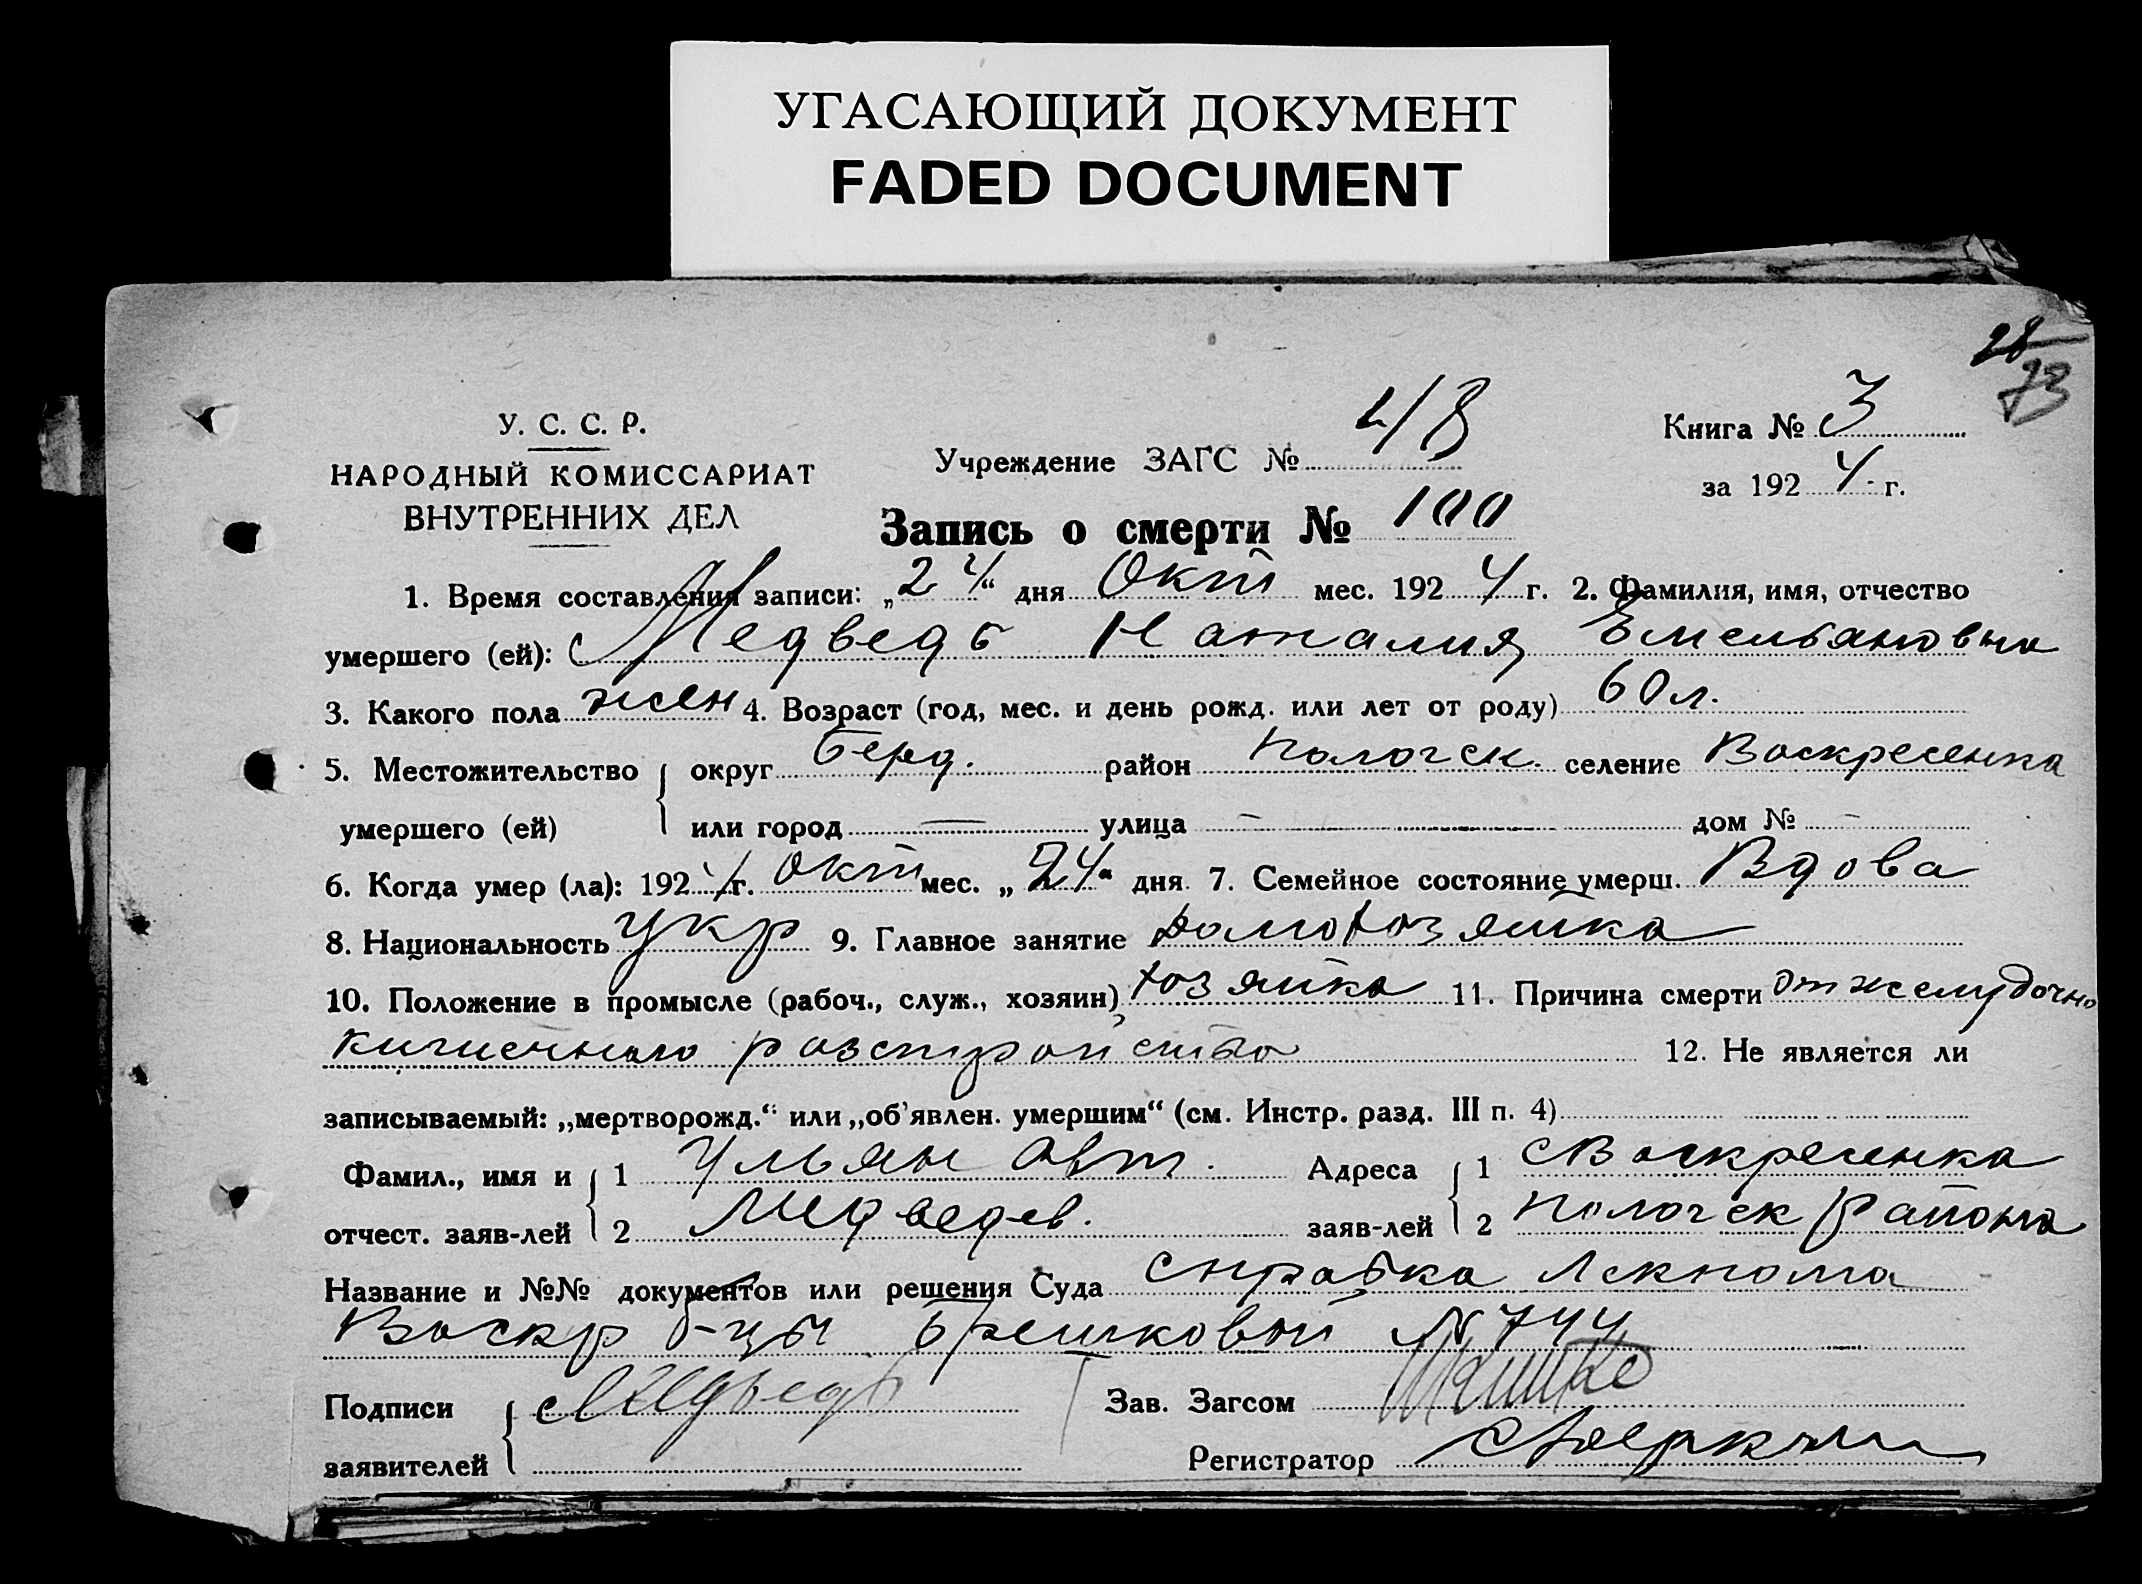 УГАСАЮЩИЙ ДОКУМЕНТ
FADED DOCUMENT
28
73
У. С. С. Р.
НАРОДНЫЙ КОМИССАРИАТ
ВНУТРЕННИХ ДЕЛ
Учреждение ЗАГС № 48
Книга № 3
за 1924 г.
Запись о смерти № 100
1. Время составления записи: „24“ дня Окт мес. 1924 г. 2. Фамилия, имя, отчество
умершего (ей): Медведь Наталия Емельяновна
3. Какого пола жен 4. Возраст (год, мес. и день рожд. или лет от роду) 60 л.
5. Местожительство округ Берд. район Пологск. селение Воскресенка
умершего (ей) или город — улица — дом № —
6. Когда умер (ла): 1924 г. окт мес. „24“ дня 7. Семейное состояние умерш. Вдова
8. Национальность укр 9. Главное занятие Домохозяйка
10. Положение в промысле (рабоч., служ., хозяин) хозяйка 11. Причина смерти от желудочно
кишечного розстройства 12. Не является ли
записываемый: „мертворожд.“ или „об'явлен. умершим“ (см. Инстр. разд. III п. 4)
Фамил., имя и 1 Ульян Авт. Адреса 1 с Воскресенка
отчест. заяв-лей 2 Медведев. заяв-лей 2 Пологск района
Название и №№ документов или решения Суда справка Лекпома
Воскр б-цы № 744
Подписи Медведь Зав. Загсом
заявителей Регистратор